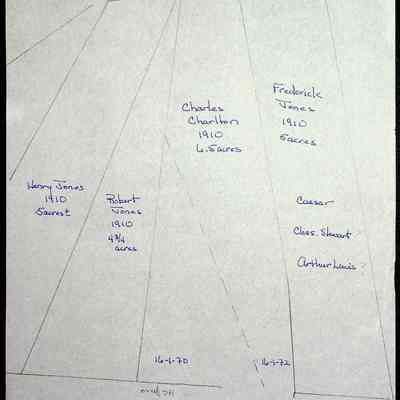 Henry Jones
1910
5acres±
Robert
Jones
1910
4 3/4
acres
Charles
Charlton
1910
6.5acres
Frederick
Jones
1910
5acres
Caesar
Chas. Stewart
Arthur Lewis
16-1-70
16-1-72